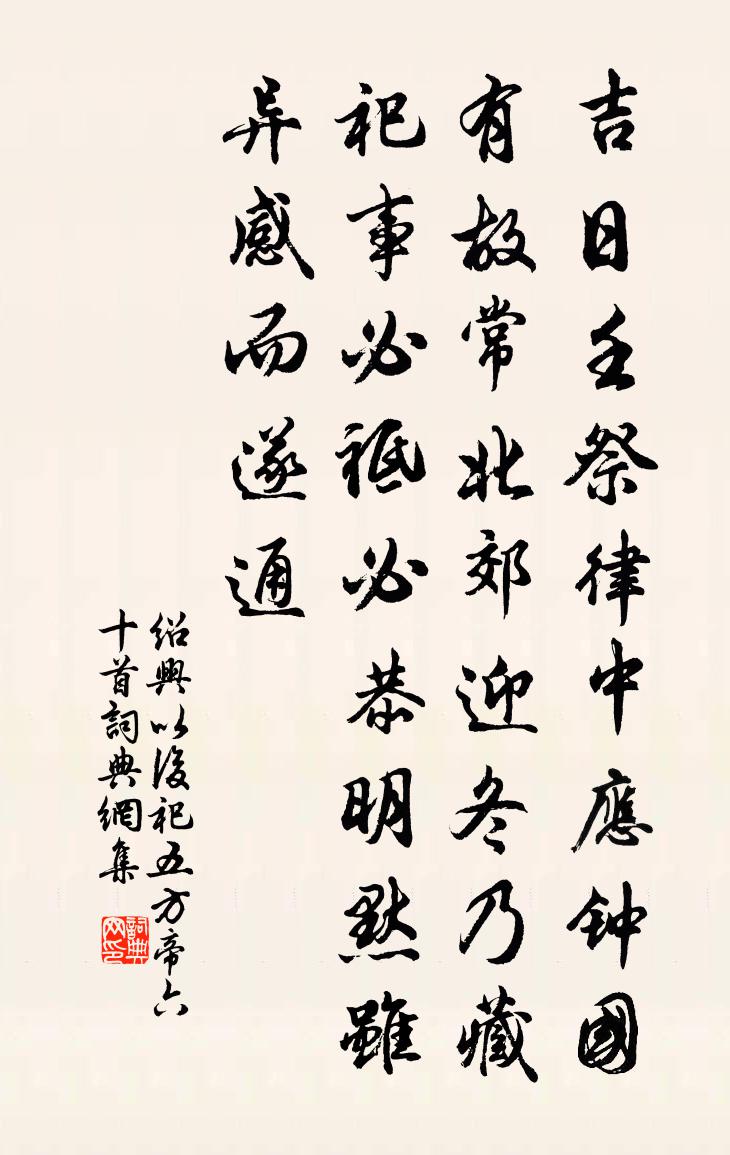 吉日壬祭律中應钟國
有故常北郊迎冬乃藏
祀事必祗必恭明默雖
异感而遂通
绍興以後祀五方帝六
十首詞典網集
詞典
网印